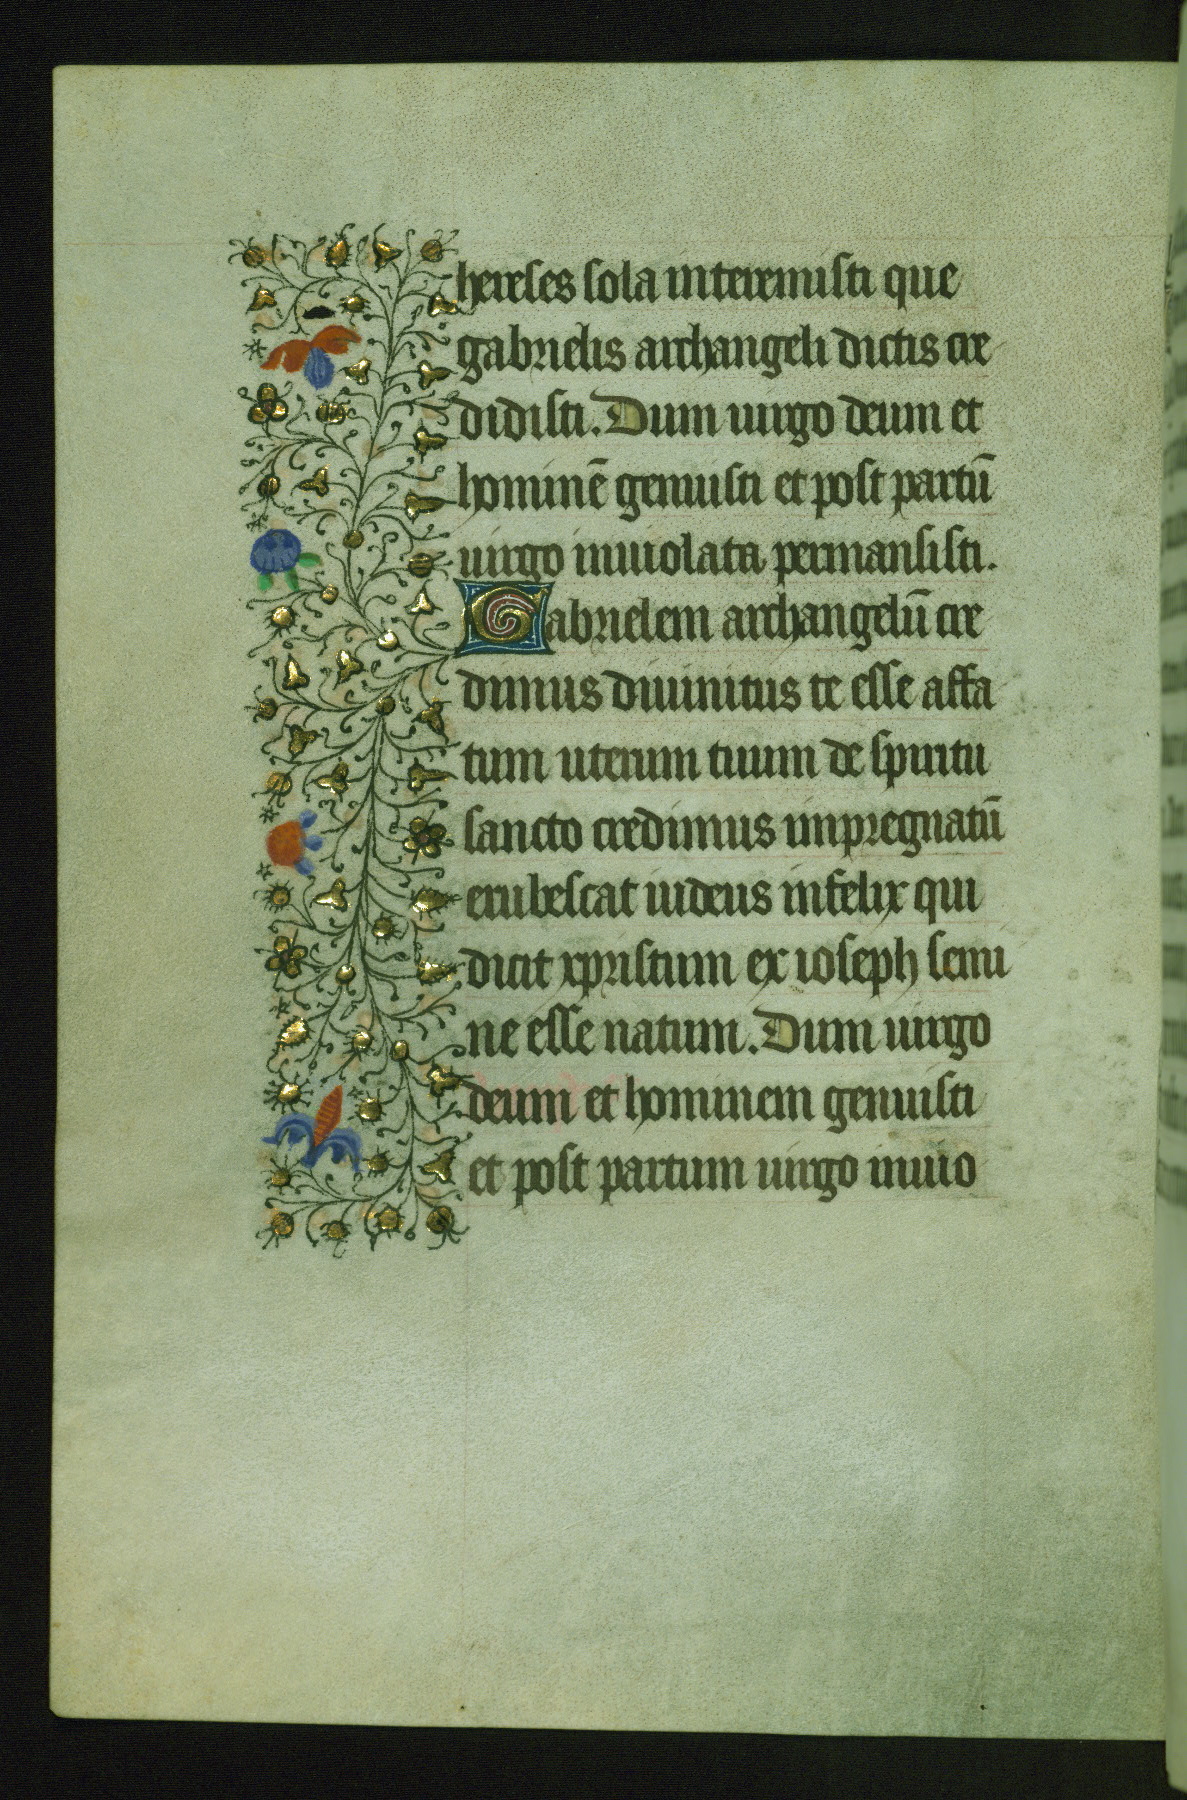 hereses sola interemisti que
gabrielis archangeli dictis cre
didisti. Dum uirgo deum et
hominē genuisti et post partū
uirgo inuiolata permansisti.
Gabrielem archangelū cre
dimus diuinitus te esse affa
tum uterum tuum de spiritu
sancto credimus impregnatū
erubescat iudeus infelix qui
dicit xpristum ex ioseph semi
ne esse natum. Dum uirgo
deum et hominem genuisti
et post partum uirgo inuio